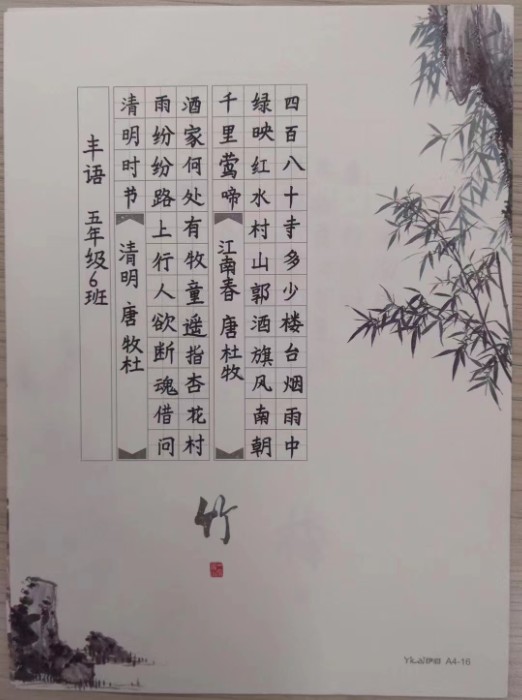 丰语 五年级6班
清明时节
清明 唐 牧杜
雨纷纷路上行人欲断魂借问
酒家何处有牧童遥指杏花村
千里莺啼
江南春 唐 杜牧
绿映红水村山郭酒旗风南朝
四百八十寺多少楼台烟雨中
竹
A4-16